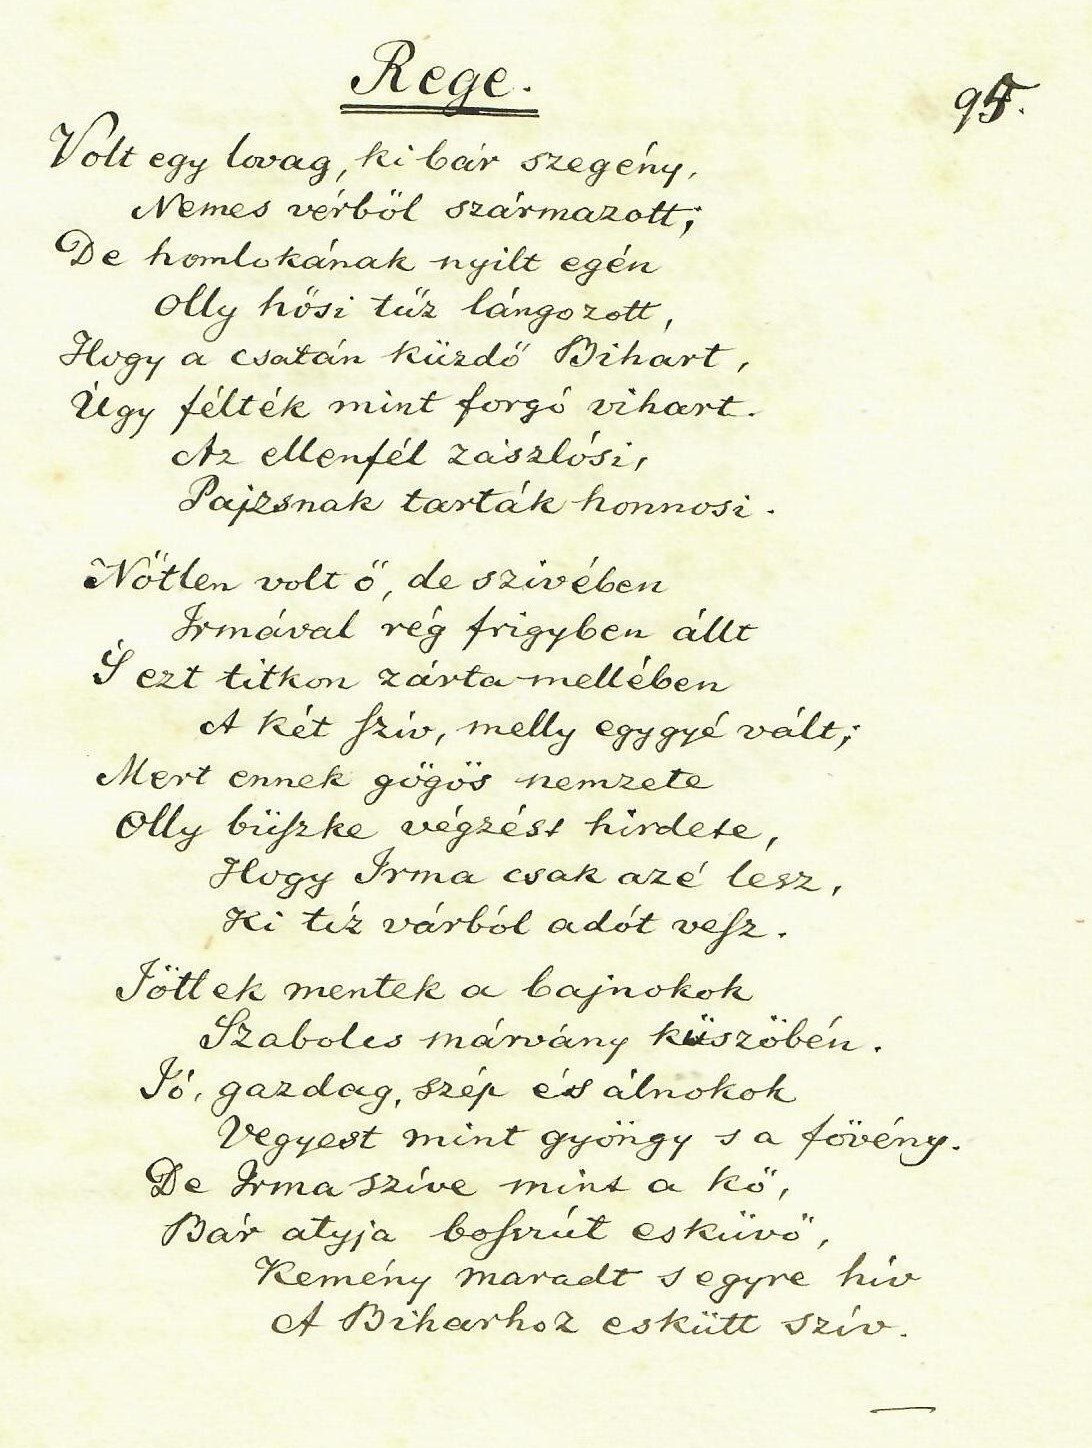 Rege.
95.
Volt egy lovag, ki bár szegény,
Nemes vérből származott;
De homlokának nyilt egén
Olly hősi tűz lángozott,
Hogy a csatán küzdő Bihart,
Úgy félték mint forgó vihart.
Az ellenfél zászlósi,
Pajzsnak tarták honnosi.
Nőtlen volt ő, de szivében
Irmával rég frigyben állt
S ezt titkon zárta mellében
A két ſzív, melly egygyé vált;
Mert ennek gőgös nemzete
Olly büſzke végzést hirdete,
Hogy Irma csak azé lesz,
Ki tíz várból adót veſz.
Jöttek mentek a bajnokok
Szabolcs márvány küszöbén.
Jó, gazdag, szép és álnokok
Vegyest mint gyöngy s a fövény.
De Irma szíve mint a kő,
Bár atyja boſszút esküvő,
Kemény maradt s egyre hív
A Biharhoz eskütt szív.